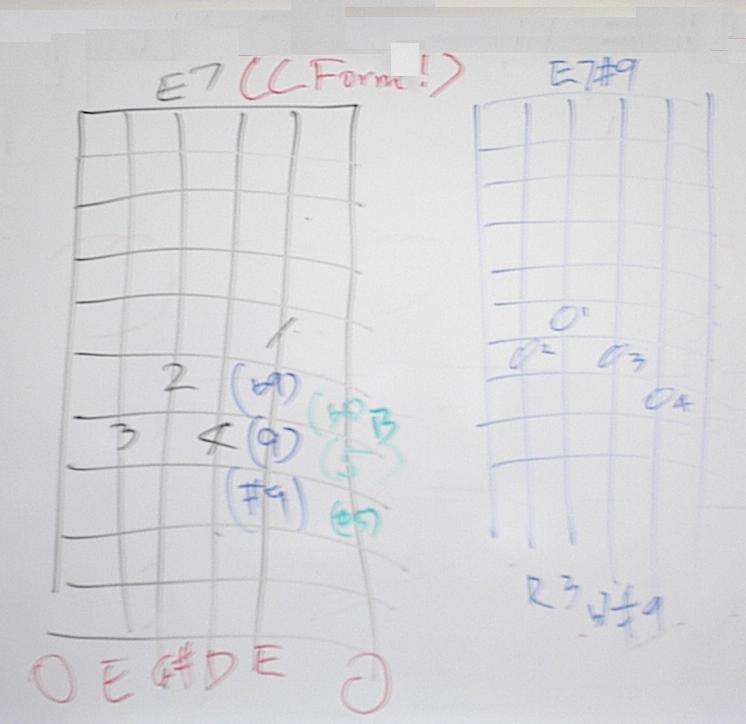 E7 (C Form!)
E7#9
1
O1
2 (b9)
O2 O3
(b5) B
O4
3 4 (9)
(5)
(#9) (#5)
R 3 b7 #9
O E G# D E O